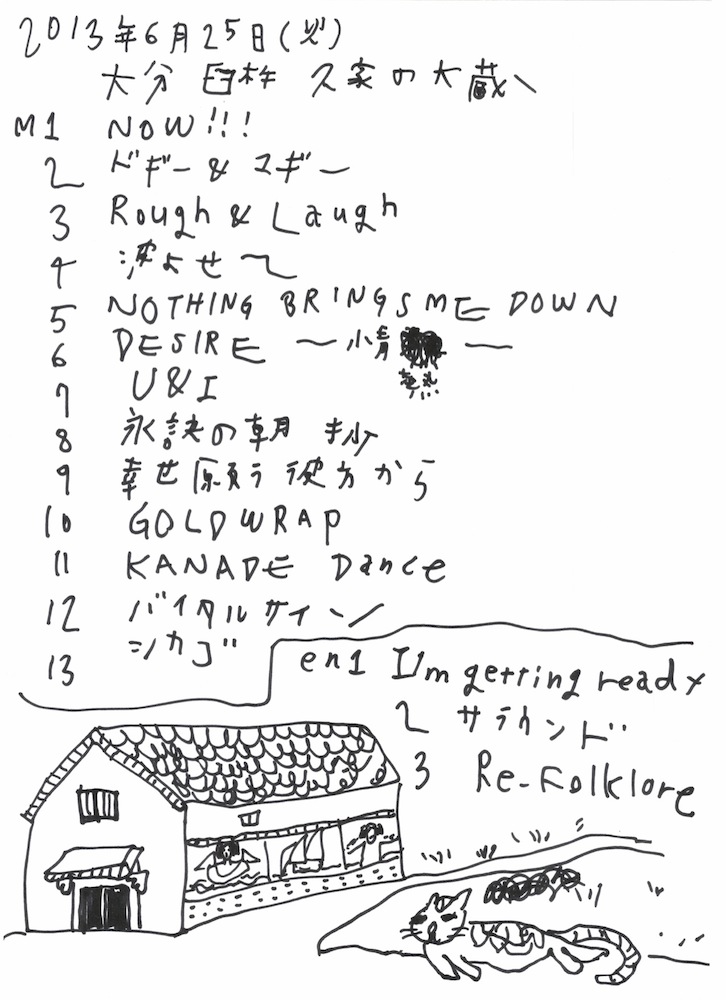 2013年6月25日(火)
大分 臼杵 久家の大蔵
M1 NOW!!!
2 ドギー&マギー
3 Rough & Laugh
4 波よせて
5 NOTHING BRINGS ME DOWN
6 DESIRE ー情
熱ー
7 U&I
8 永訣の朝
9 幸せ願う彼方から
10 GOLD WRAP
11 KANADE Dance
12 バイタルサイン
13 シカゴ
en1 I'm getting ready
2 サラウンド
3 Re-Folklore